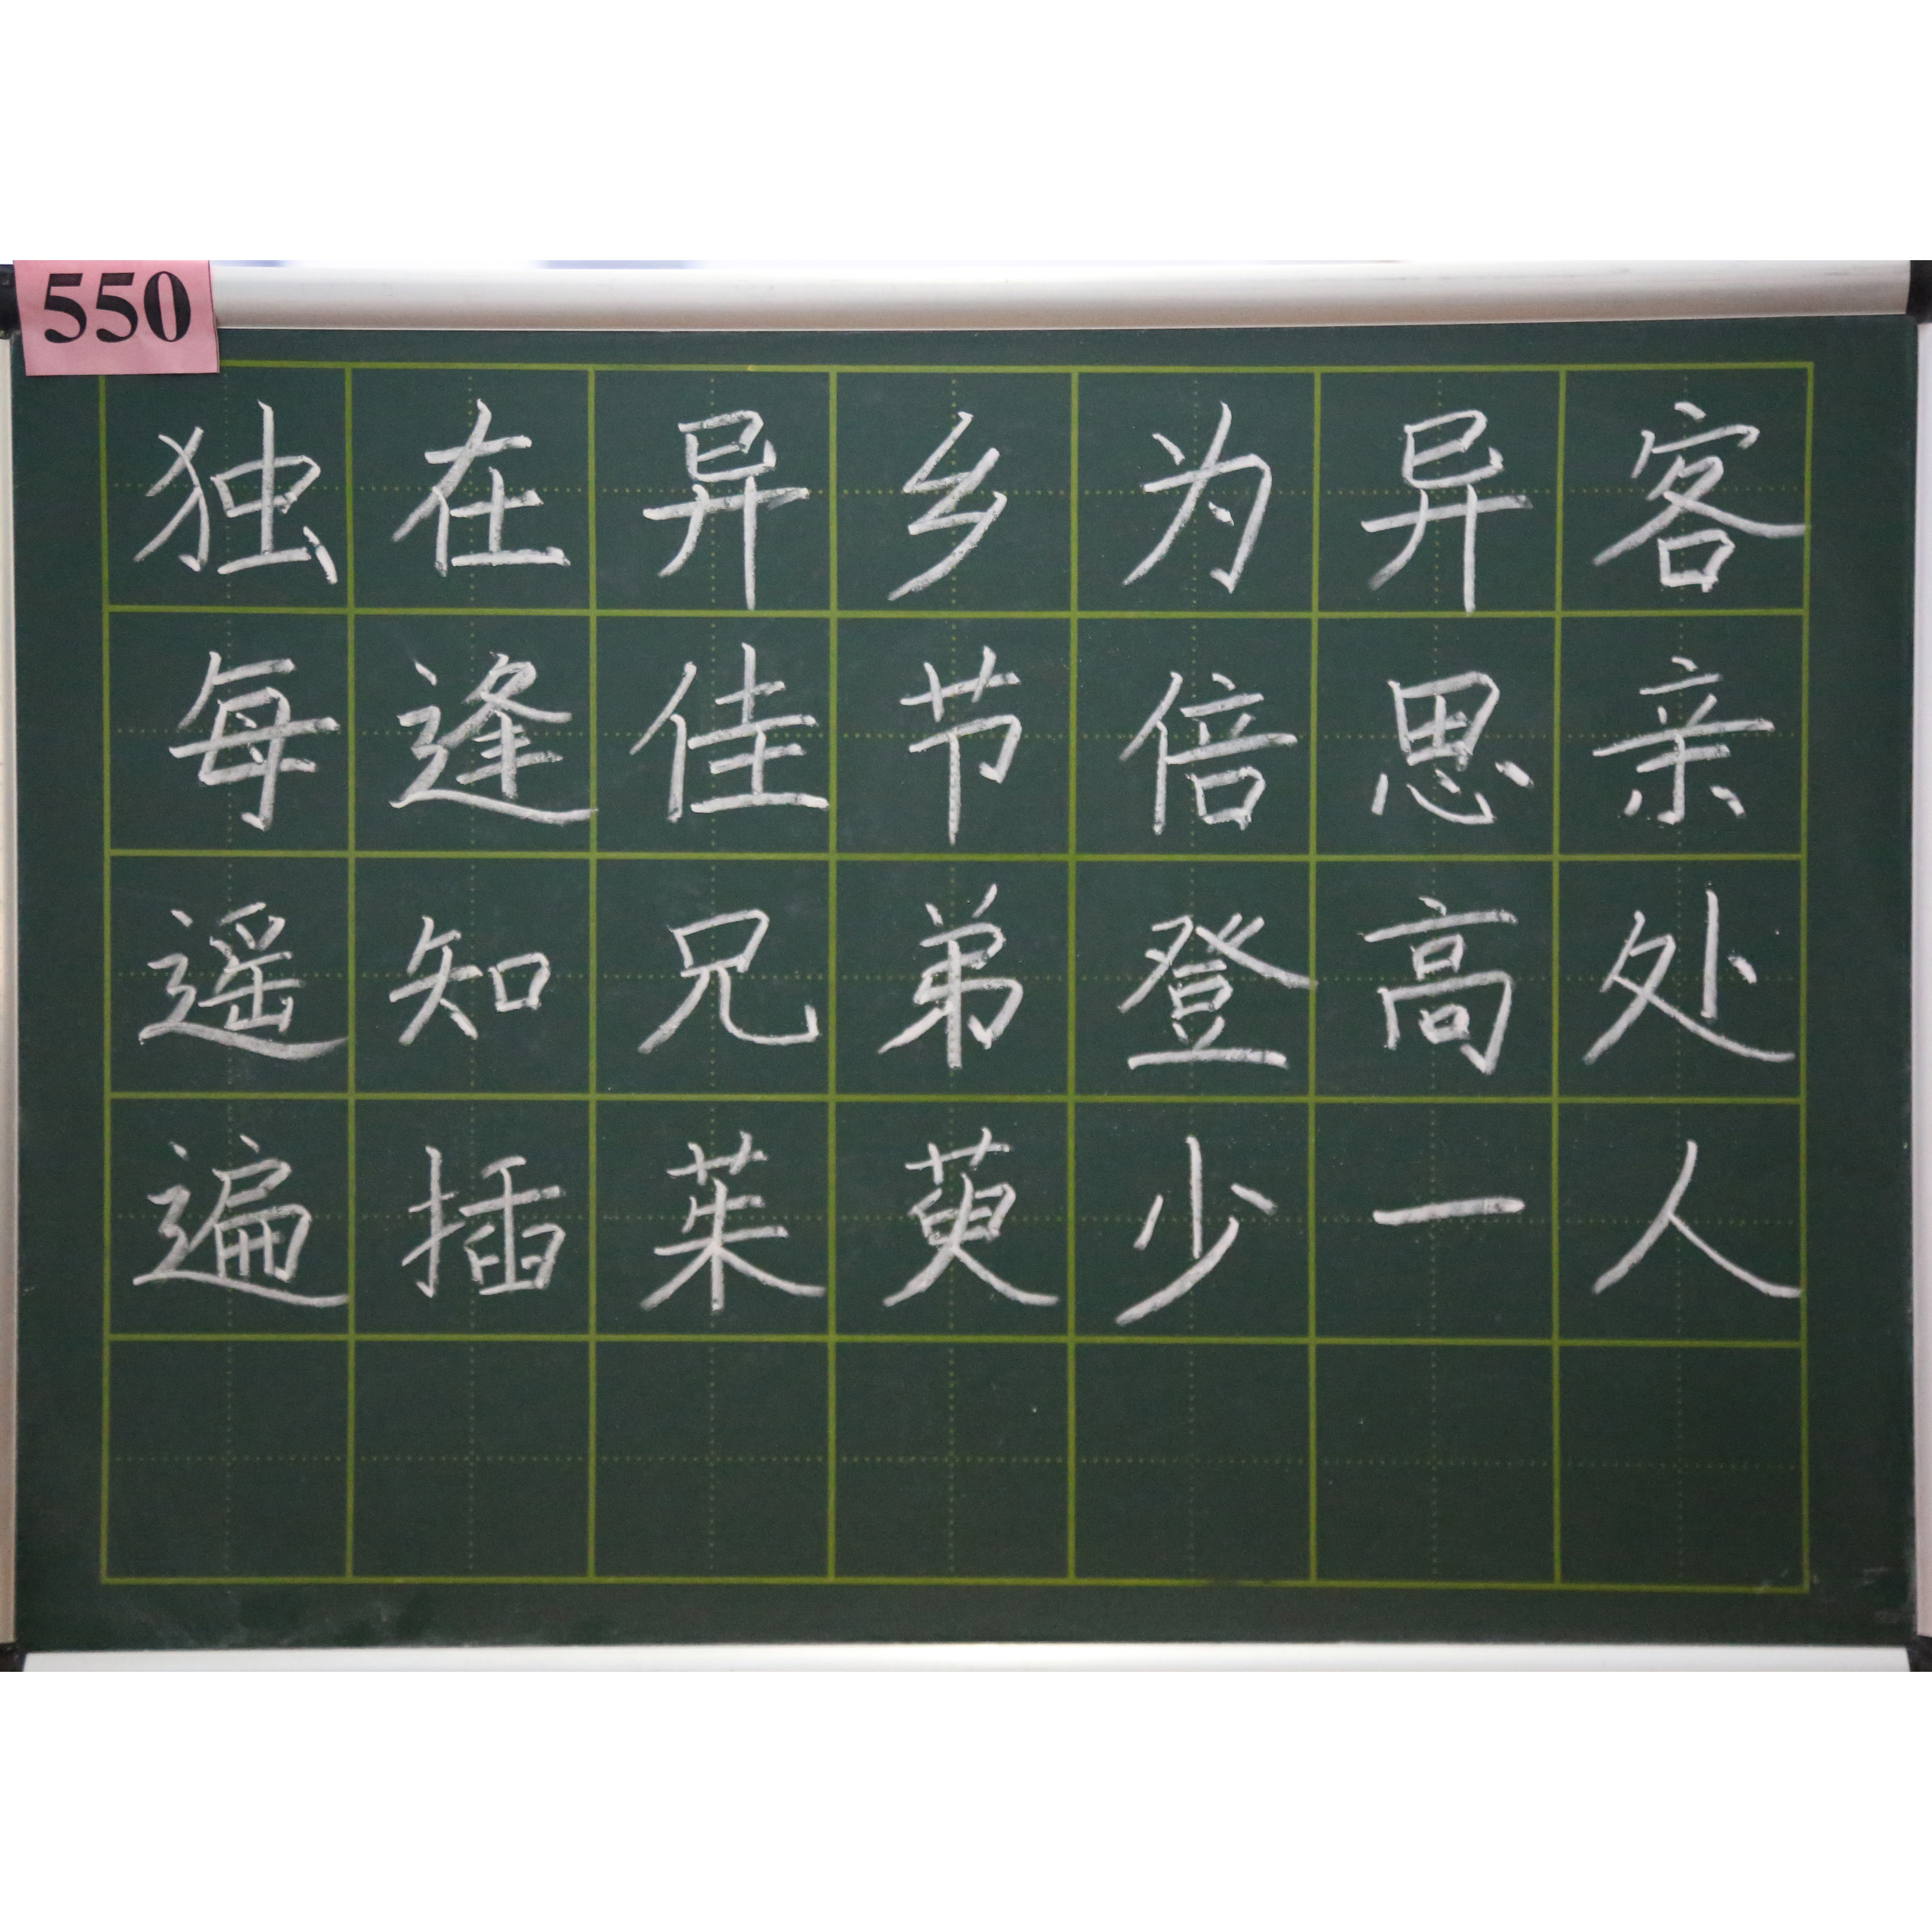 550
独在异乡为异客
每逢佳节倍思亲
遥知兄弟登高处
遍插茱萸少一人